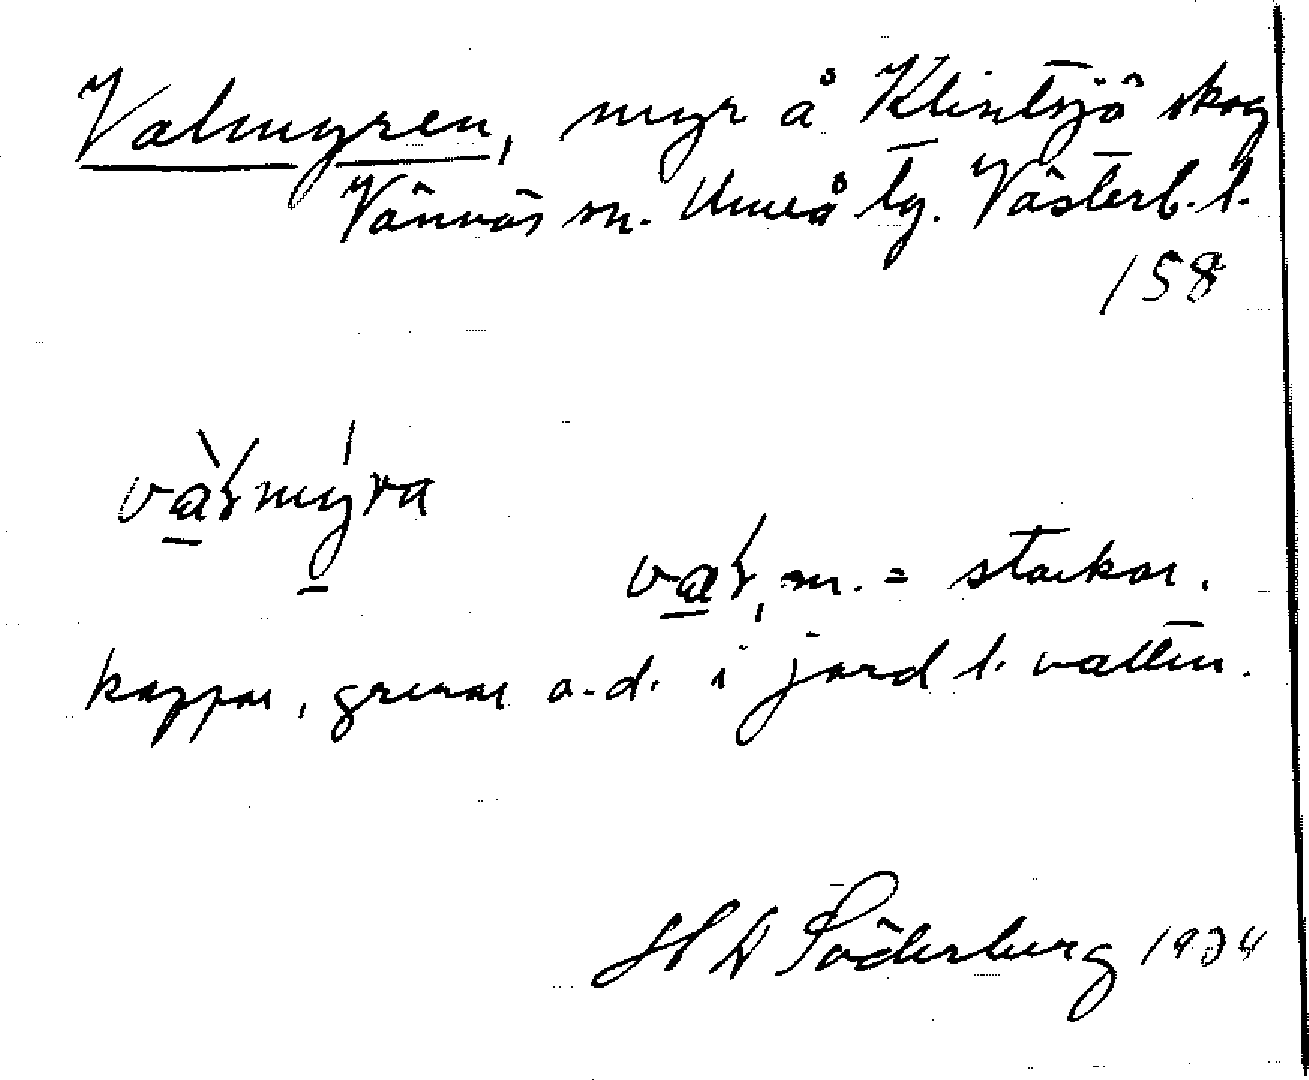 Valmyren, myr å Klintsjö skog
Vännäs sn. Umeå tg. Västerb. l.
158
vałmyra
vał, m. = stockar,
kappar, grenar o.d. i jord l. vatten.
H D Söderberg 1934